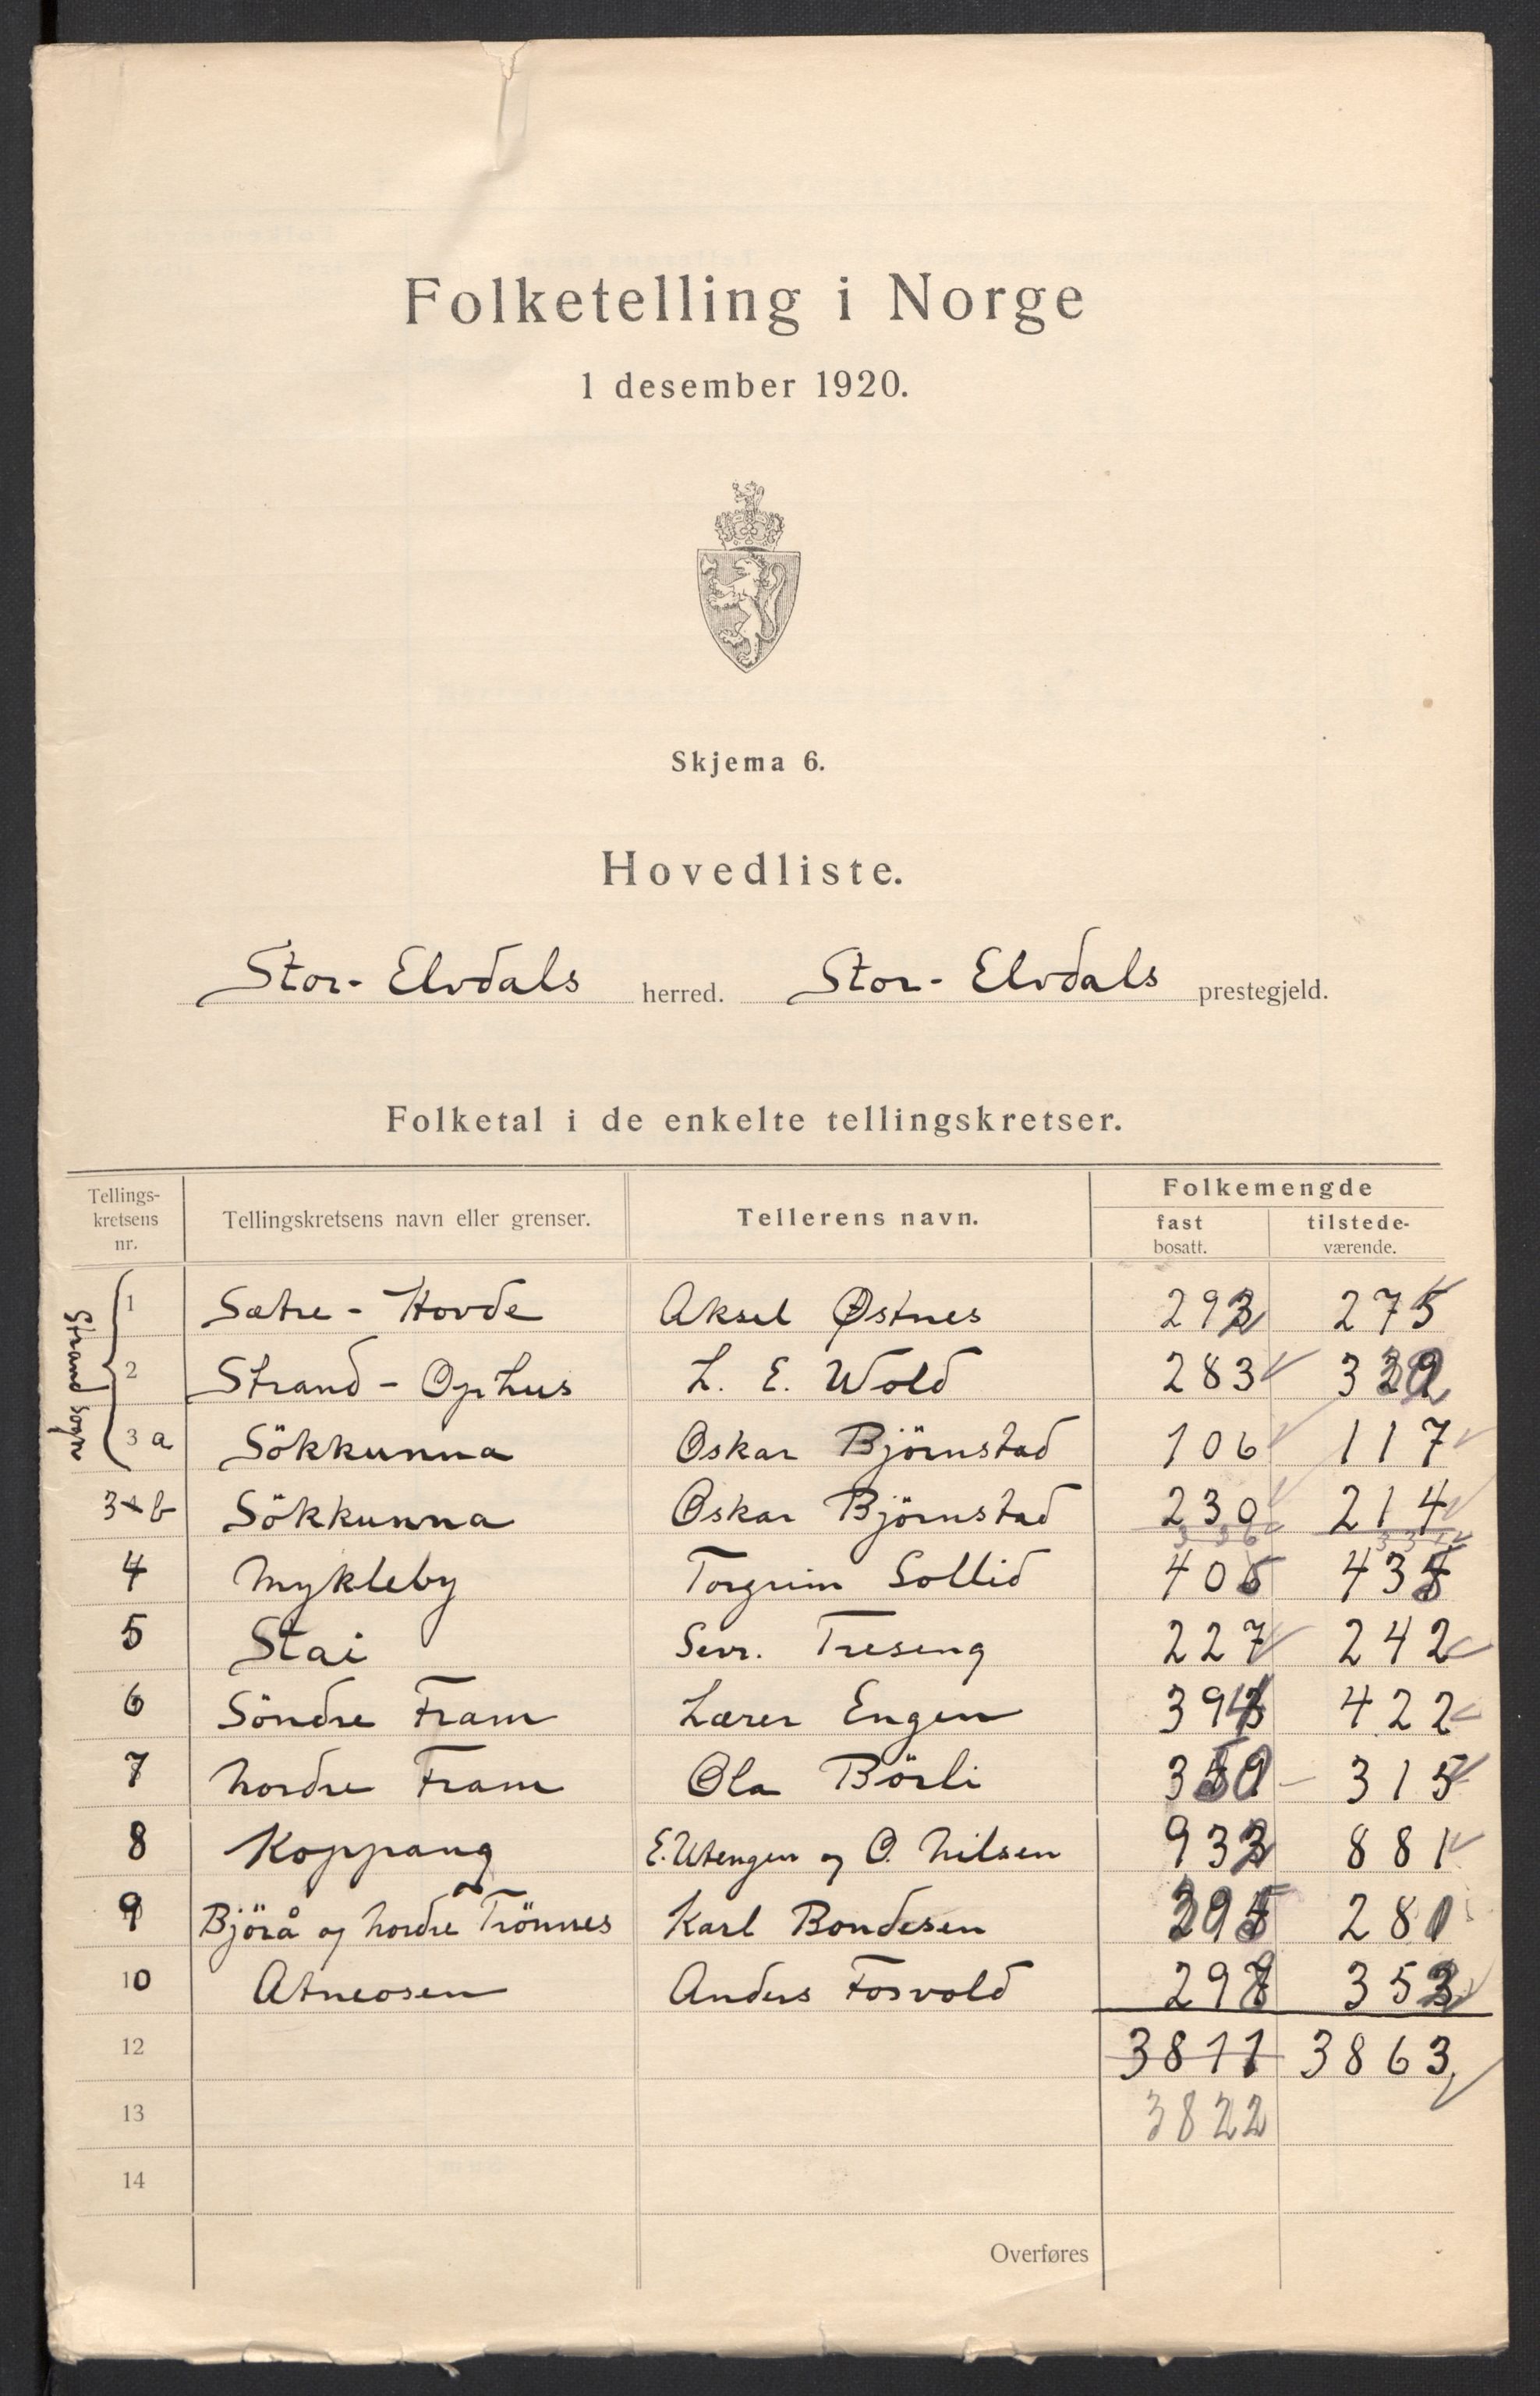 Folketelling i Norge
1 desember 1920.
Skjema 6.
Hovedliste.
Stor-Elvdals herred. Stor-Elvdals prestegjeld.
Folketal i de enkelte tellingskretser.
Tellings-
kretsens
nr.
Tellingskretsens navn eller grenser.
Tellerens navn.
Folkemengde
fast
bosatt.
tilstede-
værende.
Strand sogn
1 Sætre - Hovde Aksel Østnes 275
2 Strand - Ophus L. E. Wold 283
3 a Sökkunna Oskar Björnstad 106 117
3 b Sökkunna Oskar Björnstad 230 214
336 331
4 Mykleby Torgrim Sollid
5 Stai Sevr. Treseng 227 242
6 Söndre Fram Lærer Engen 422
7 Nordre Fram Ola Börli 315
8 Koppang E. Utengen og O. Nilsen 881
9 Björå og Nordre Trönnes Karl Bondesen 281
10 Atneosen Anders Fosvold
12 3811 3863
13 3822
14
Overføres